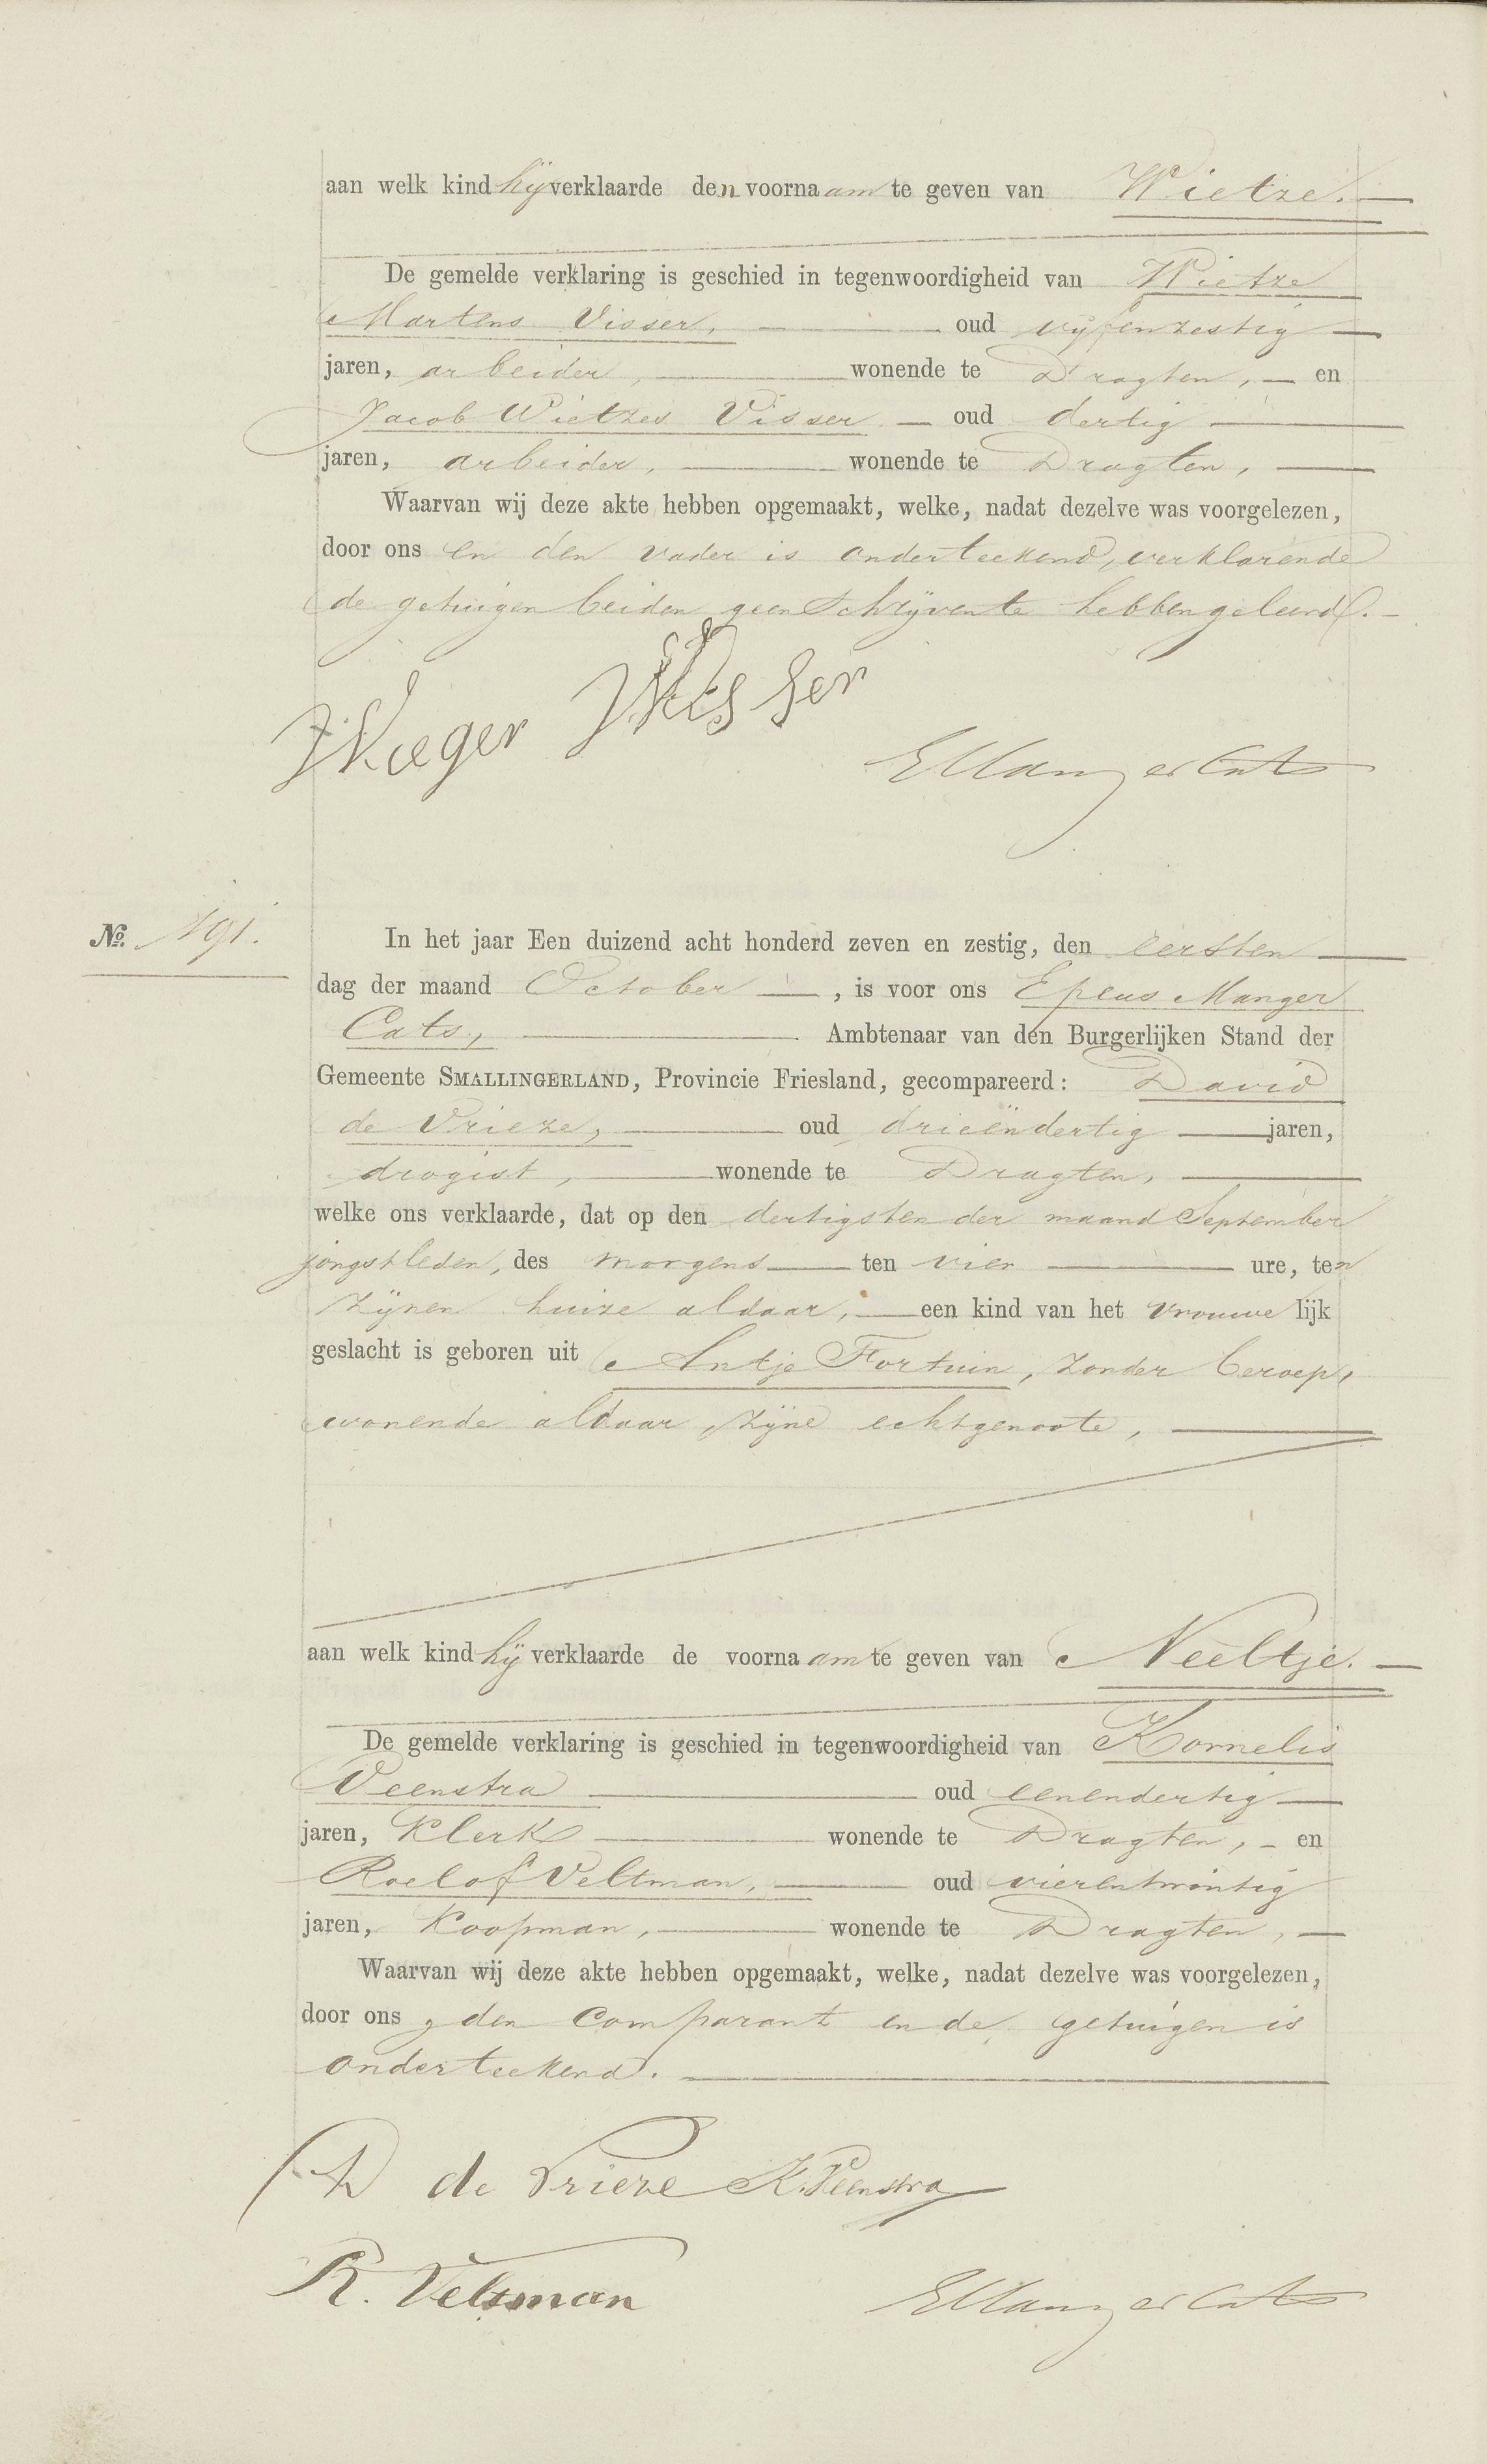 aan welk kind hij verklaarde den voornaam te geven van Wietze.
De gemelde verklaring is geschied in tegenwoordigheid van Wietze
Martens Visser, oud vijfenzestig
jaren, arbeider, wonende te Dragten, en
Jacob Wietzes Visser oud dertig
jaren, arbeider, wonende te Dragten,
Waarvan wij deze akte hebben opgemaakt, welke, nadat dezelve was voorgelezen,
door ons en den vader is onderteekend, verklarende
de getuigen beiden geen schrijven te hebben geleerd.
Visser
EManger Cats
No. 191.
In het jaar Een duizend acht honderd zeven en zestig, den eersten
dag der maand October, is voor ons Epeus Manger
Cats, Ambtenaar van den Burgerlijken Stand der
Gemeente SMALLINGERLAND, Provincie Friesland, gecompareerd: David
de Vrieze, oud drieëndertig jaren,
drogist, wonende te Dragten,
welke ons verklaarde, dat op den dertigsten der maand September
jongstleden, des morgens ten vier ure, ten
zijnen huize aldaar, een kind van het vrouwelijk
geslacht is geboren uit Antje Fortuin, zonder beroep,
wonende aldaar, zijne echtgenoote,
aan welk kind hij verklaarde de voornaam te geven van Neeltje.
De gemelde verklaring is geschied in tegenwoordigheid van Kornelis
Veenstra oud eenendertig
jaren, Klerk wonende te Dragten, en
Roelof Veltman, oud vierentwintig
jaren, Koopman, wonende te Dragten,
Waarvan wij deze akte hebben opgemaakt, welke, nadat dezelve was voorgelezen,
door ons, den Comparant en de getuigen is
onderteekend.
D de Vrieze K. Veenstra
R. Veltman EManger Cats